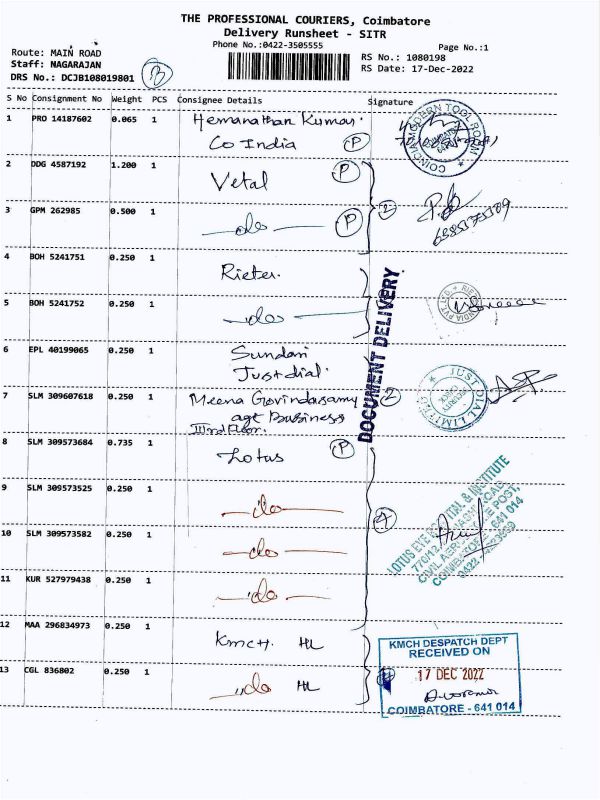 THE PROFESSIONAL COURIERS, Coimbatore
Delivery Runsheet - SITR
Phone No.:0422-3505555
Page No.:1
Route: MAIN ROAD
RS No.: 1080198
Staff: NAGARAJAN
RS Date: 17-Dec-2022
DRS No.: DCJB108019801
S No Consignment No Weight PCS Consignee Details Signature
1 PRO 14187602 0.065 1 Hemanathan Kumar.
Co India P
COINDIA MODERN TOOL ROOM
2 DDG 4587192 1.200 1 Vetal P
3 GPM 262985 0.500 1 do P 2
4 BOH 5241751 0.250 1 Rieter.
5 BOH 5241752 0.250 1 do
DOCUMENT DELIVERY
6 EPL 40199065 0.250 1 Sundari
Just dial.
JUST DIAL LIMITED
7 SLM 309607618 0.250 1 Meena Govindasamy 2
age Business
IIIrd Floor.
8 SLM 309573684 0.735 1 Lotus P
9 SLM 309573525 0.250 1 do
10 SLM 309573582 0.250 1 do 4
LOTUS EYE HOSPITAL & INSTITUTE
CIVIL AERODROME POST,
COIMBATORE - 641 014
11 KUR 527979438 0.250 1 do
12 MAA 296834973 0.250 1 Kmch. HL
KMCH DESPATCH DEPT
RECEIVED ON
13 CGL 836802 0.250 1 do HL
17 DEC 2022
COIMBATORE - 641 014